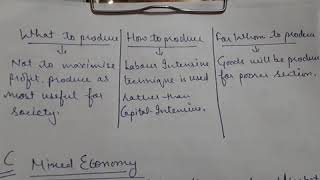 What to produce
Not to maximise
profit, produce as
most useful for
society.
How to produce
Labour Intensive
technique is used
rather than
Capital-Intensive.
For Whom to produce
Goods will be produce
for poorer section.
C Mixed Economy